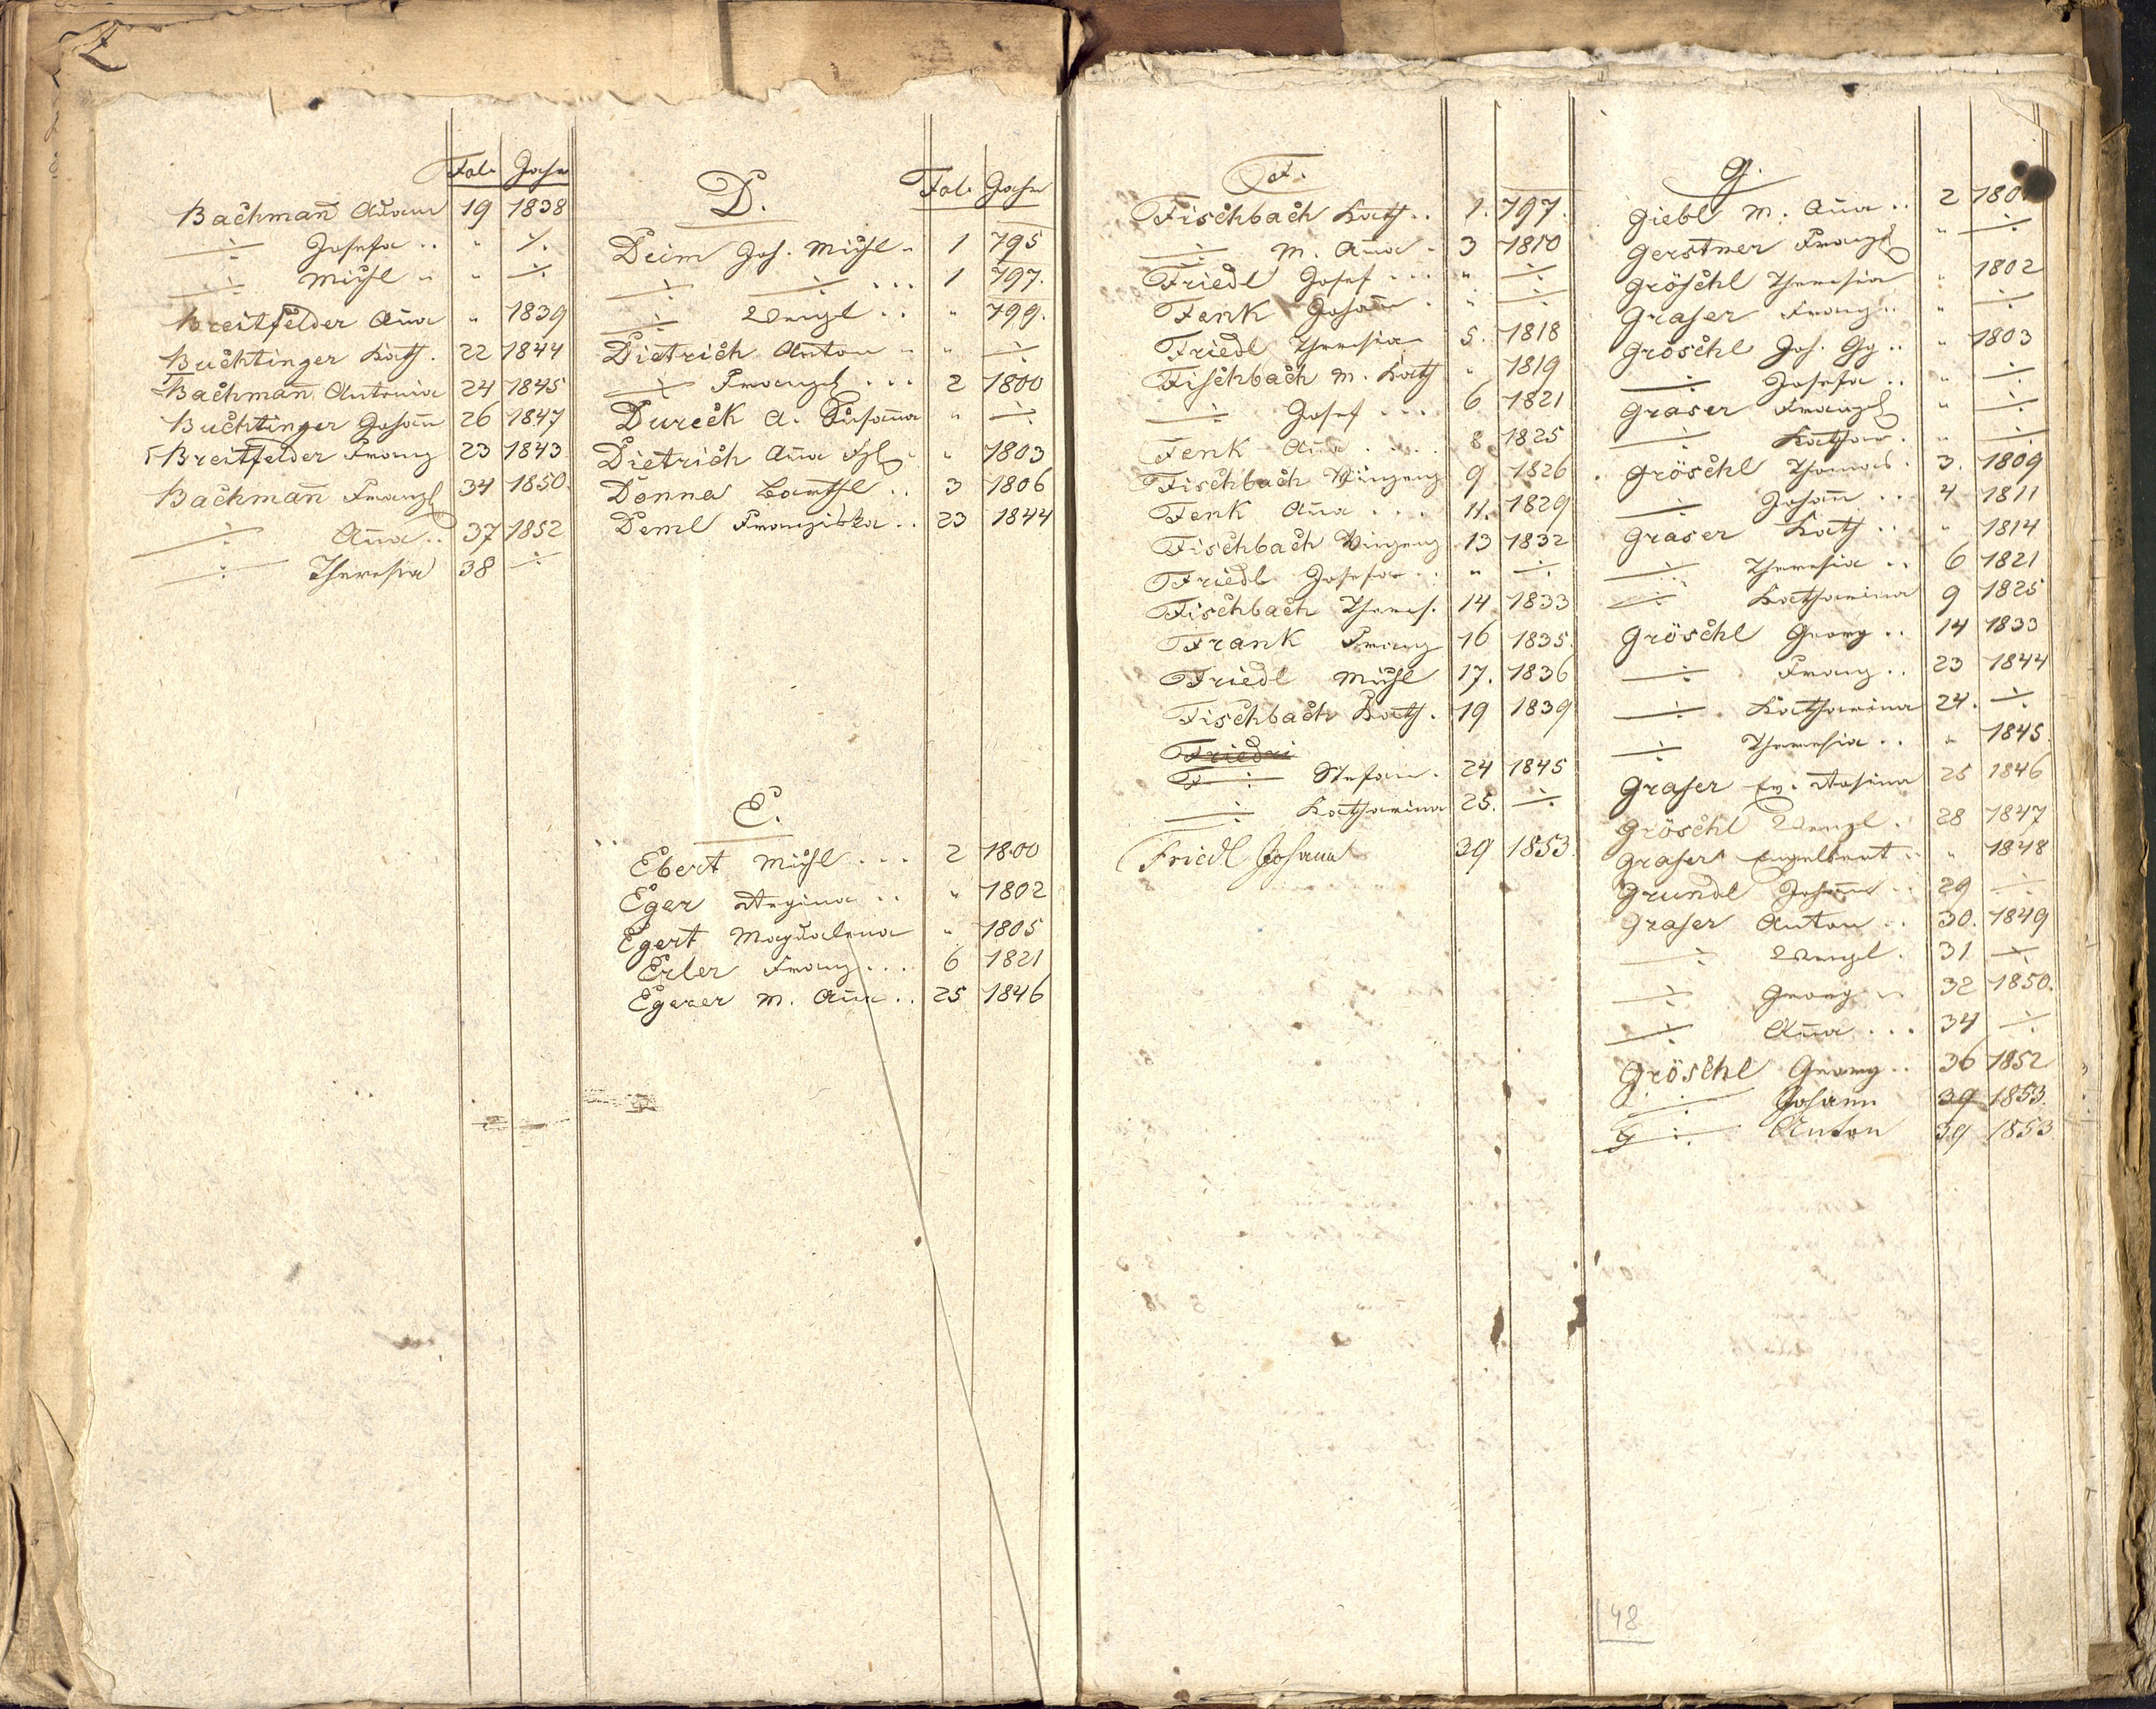 Fol. Jahr
Bachmañ Adam 19 1838
÷ Josefa .. " ÷.
÷ Michl .. " ÷
Breitfelder Aña " 1839
Buchtinger Kath. 22 1844
Bachmañ Antonia 24 1845
Buchtinger Johañ 26 1847
Breitfelder Franz 23 1843
Bachmañ Franz 34 1850.
÷ Aña .. 37 1852
÷ Theresia 38 ÷
D. Fol. Jahr
Deim Joh. Michl .. 1 795
÷ ÷ ... 1 797.
÷ Wenzl .. " 799.
Dietrich Anton .. " ÷
÷ Franz ... 2 1800
Dureck A. Susaña " ÷
Dietrich Aña " 1803
Donna Barthl .. 3 1806
Deml Franziska .. 23 1844
E.
Ebert Michl ... 2 1800
Eger Regina .. " 1802
Egert Magdalena " 1805
Erler Franz .... 6 1821
Egerer M. Aña .. 25 1846
F.
Fischbach Kath .. 1. 797.
÷ M. Aña . 3 1810
Friedl Josef ... " ÷
Fenk Johañ . " ÷
Friedl Theresia 5. 1818
Fischbach M. Kath " 1819
÷ Josef ... 6 1821
Fenk Aña .... 8 1825
Fischbach Vinzenz 9 1826
Fenk Aña ... 11. 1829
Fischbach Vinzenz 13 1832
Friedl Josefa .. " ÷
Fischbach Theres. 14 1833
Frank Franz 16 1835.
Friedl Michl 17. 1836
Fischbach Kath. 19 1839
Friedri
F ÷ Stefan . 24 1845
÷ Katharina 25. ÷
Friedl Johann 39 1853.
G.
Giebl M. Aña .. 2 180
Gerstner Franz " ÷
Gröschl Theresia " 1802
Graser Franz .. " ÷
Gröschl Joh. Gg .. " 1803
÷ Josefa .. " ÷
Graser Franz " ÷
÷ Kathar. " ÷
Gröschl Thomas . 3. 1809
÷ Johañ .. 4 1811
Graser Kath .. " 1814
÷ Theresia .. 6 1821
÷ Katharina 9 1825
Gröschl Georg .. 14 1833
÷ Franz .. 23 1844
÷ Katharina 24. ÷
÷ Theresia .. " 1845.
Graser Ev. Rosina 25 1846
Gröschl Wenzl . 28 1847
Graser Engelbert .. " 1848
Grundl Johañ .. 29 ÷
Graser Anton .. 30. 1849
÷ Wenzl . 31 ÷
÷ Georg .. 32 1850.
÷ Aña ... 34 ÷
Gröschl Georg .. 36 1852
÷ Johann 39 1853.
G ÷ Anton 39 1853
48